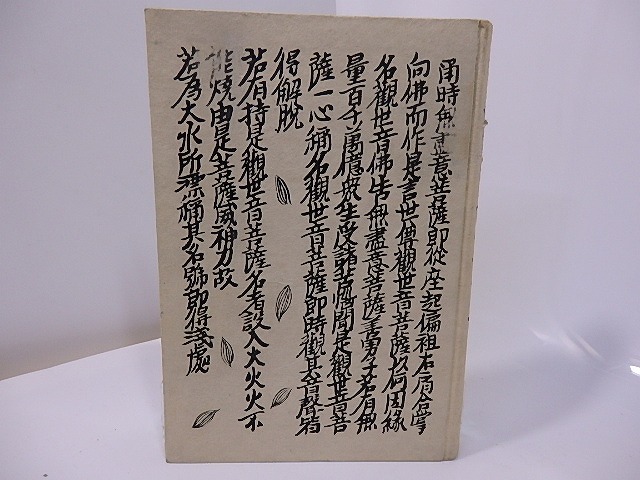 爾時無盡意菩薩即從座起偏袒右肩合掌
向佛而作是言世尊觀世音菩薩以何因緣
名觀世音佛告無盡意菩薩善男子若有無
量百千萬億衆生受諸苦惱聞是觀世音菩
薩一心稱名觀世音菩薩即時觀其音聲皆
得解脱
若有持是觀世音菩薩名者設入大火火不
能燒由是菩薩威神力故
若為大水所漂稱其名號即得淺處